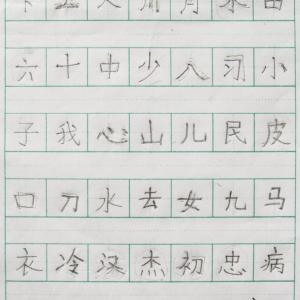 六十中少八习小
子我心山儿民皮
口刀水去女九马
衣冷汉杰初忠病